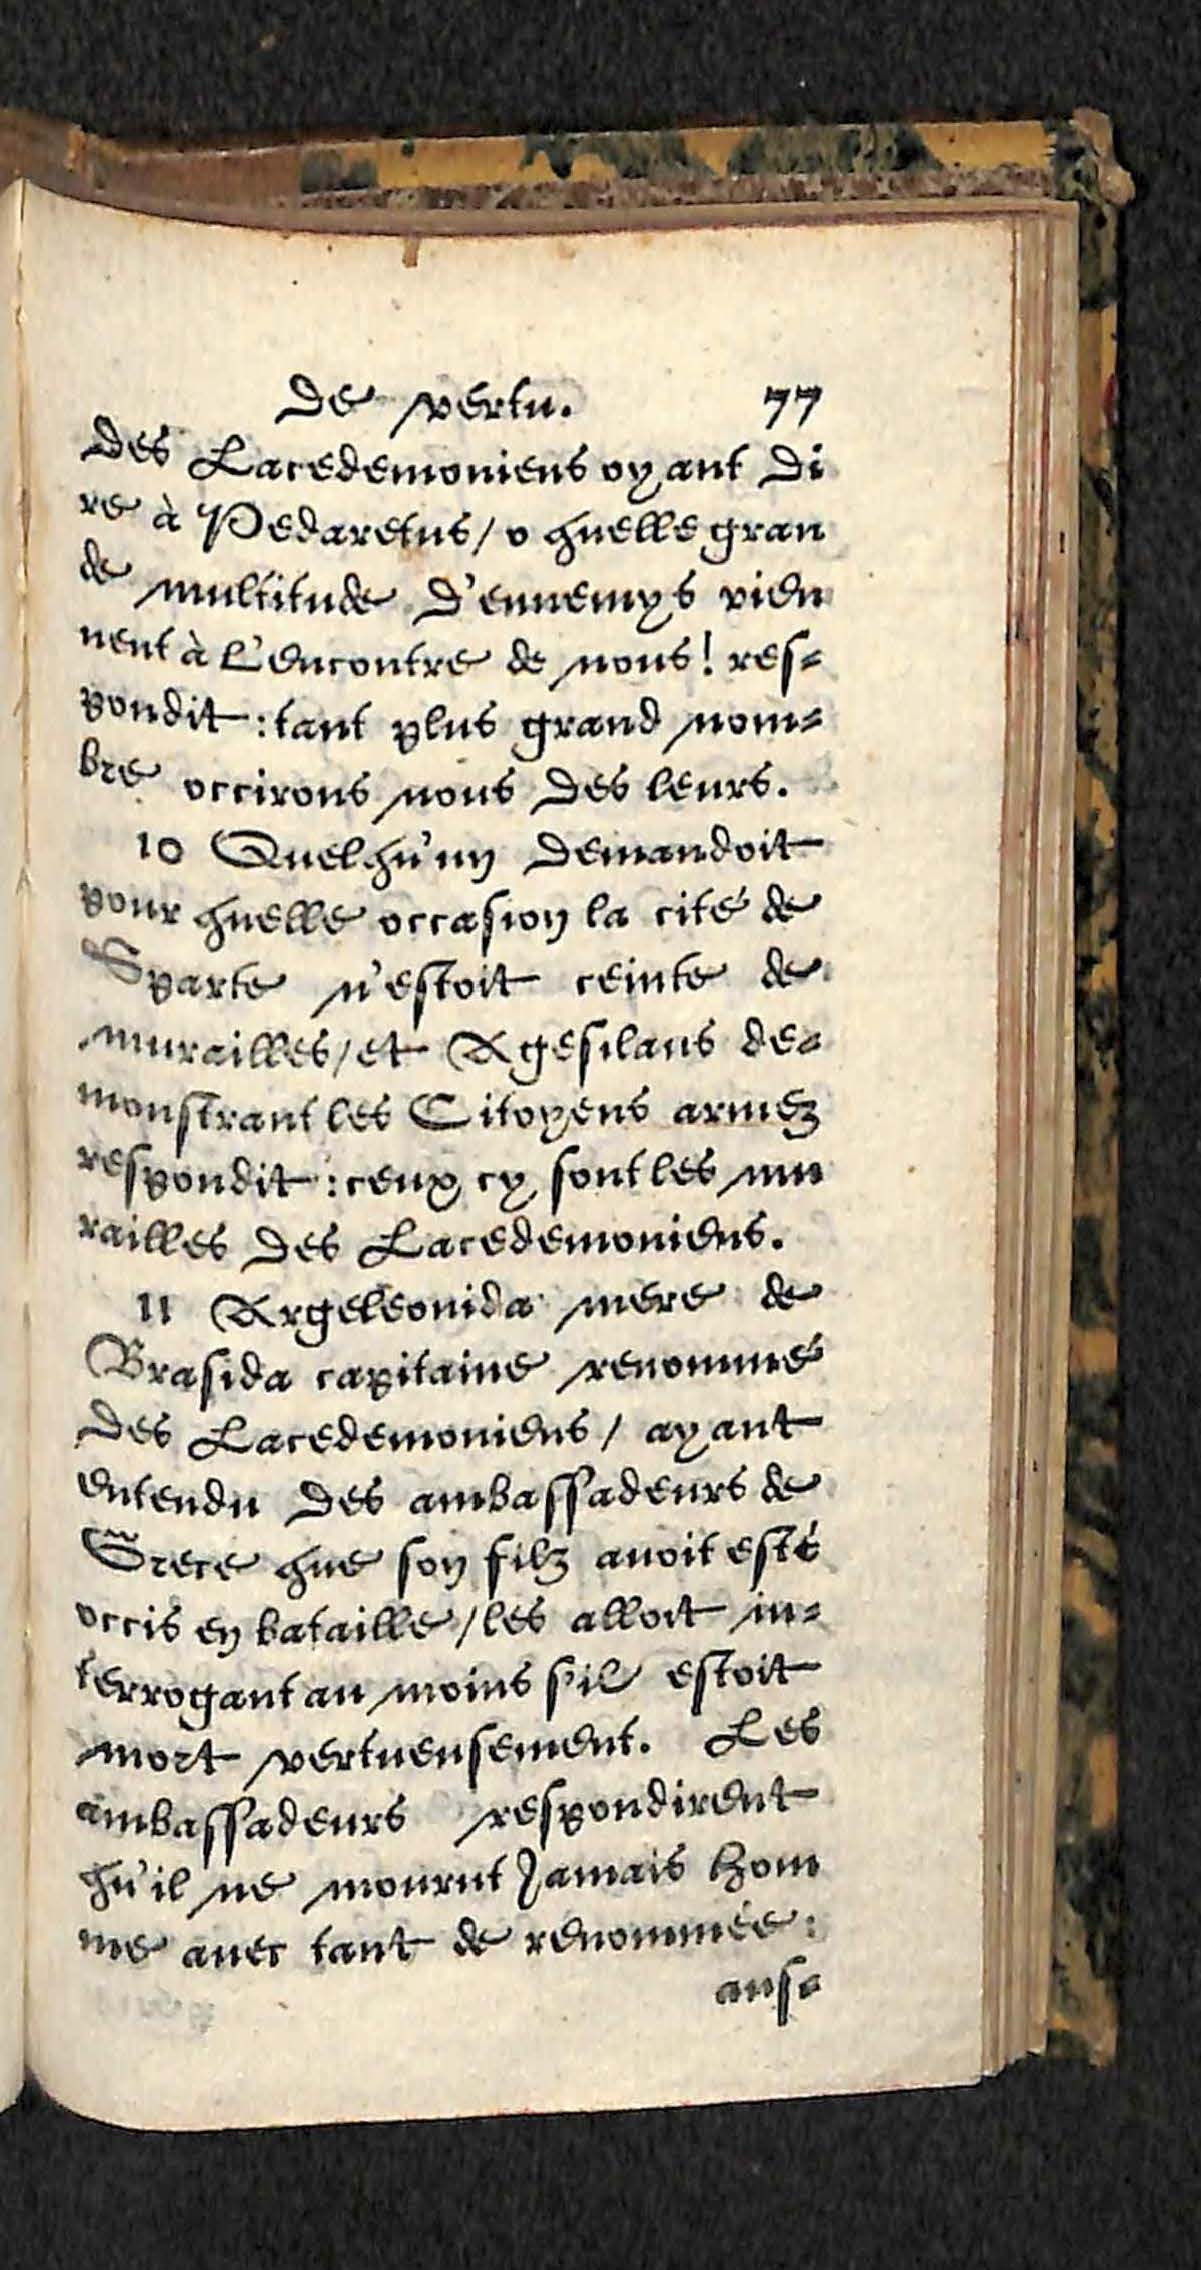 De vertu. 77
des Lacedemoniens oyant di
re à Pedaretus/ o quelle gran
de multitude d'ennemys vien
nent à l'encontre de nous! res-
pondit: tant plus grand nom-
bre occirons nous des leurs.
10 Quelqu'un demandoit
pour quelle occasion la cité de
Sparte n'estoit ceinte de
murailles/ et Agesilaus de-
monstrant les Citoyens armez
respondit: ceux cy sont les mu
railles des Lacedemoniens.
11 Argeleonida mere de
Brasida capitaine renommé
des Lacedemoniens/ ayant
entendu des ambassadeurs de
Grece que son filz avoit esté
occis en bataille/ les alloit in-
terrogant au moins s'il estoit
mort vertueusement. Les
ambassadeurs respondirent
qu'il ne mourut Jamais hom
me avec tant de renommée:
aus-